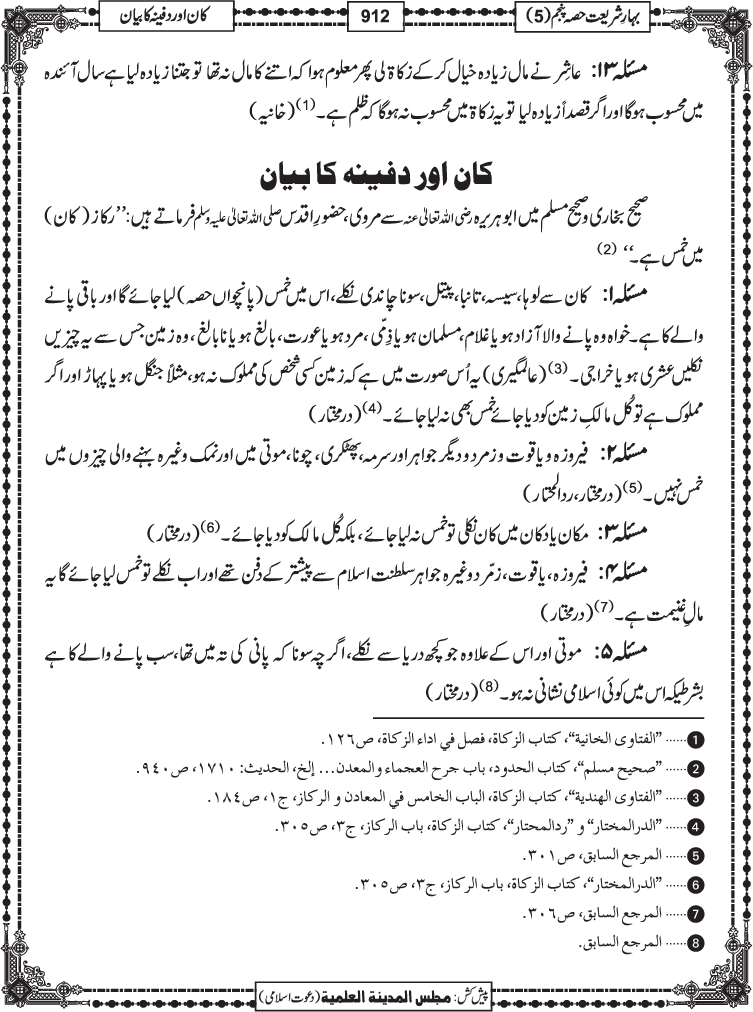 بہارِ شریعت حصہ پنجم (5)
912
کان اور دفینہ کا بیان
مسئلہ ۱۳: عاشر نے مال زیادہ خیال کر کے زکاۃ لی پھر معلوم ہوا کہ اتنے کا مال نہ تھا تو جتنا زیادہ لیا ہے سال آئندہ
میں محسوب ہوگا اور اگر قصداً زیادہ لیا تو یہ زکاۃ میں محسوب نہ ہوگا کہ ظلم ہے۔ (1) (خانیہ)
کان اور دفینہ کا بیان
صحیح بخاری و صحیح مسلم میں ابوہریرہ رضی اللہ تعالیٰ عنہ سے مروی، حضورِ اقدس صلی اللہ تعالیٰ علیہ وسلم فرماتے ہیں: ’’رکاز (کان)
میں خمس ہے۔‘‘ (2)
مسئلہ ۱: کان سے لوہا، سیسہ، تانبا، پیتل، سونا چاندی نکلے، اس میں خمس (پانچواں حصہ) لیا جائے گا اور باقی پانے
والے کا ہے۔ خواہ وہ پانے والا آزاد ہو یا غلام، مسلمان ہو یا ذِمّی، مرد ہو یا عورت، بالغ ہو یا نابالغ، وہ زمین جس سے یہ چیزیں
نکلیں عشری ہو یا خراجی۔ (3) (عالمگیری) یہ اُس صورت میں ہے کہ زمین کسی شخص کی مملوک نہ ہو، مثلاً جنگل ہو یا پہاڑ اور اگر
مملوک ہے تو کُل مالکِ زمین کو دیا جائے خمس بھی نہ لیا جائے۔ (4) (درمختار)
مسئلہ ۲: فیروزہ و یاقوت و زمرد و دیگر جواہر اور سرمہ، پھٹکری، چونا، موتی میں اور نمک وغیرہ بہنے والی چیزوں میں
خمس نہیں۔ (5) (درمختار، ردالمحتار)
مسئلہ ۳: مکان یا دکان میں کان نکلی تو خمس نہ لیا جائے، بلکہ کُل مالک کو دیا جائے۔ (6) (درمختار)
مسئلہ ۴: فیروزہ، یاقوت، زمّرد وغیرہ جواہر سلطنت اسلام سے پیشتر کے دفن تھے اور اب نکلے تو خمس لیا جائے گا یہ
مالِ غنیمت ہے۔ (7) (درمختار)
مسئلہ ۵: موتی اور اس کے علاوہ جو کچھ دریا سے نکلے، اگرچہ سونا کہ پانی کی تہ میں تھا، سب پانے والے کا ہے
بشرطیکہ اس میں کوئی اسلامی نشانی نہ ہو۔ (8) (درمختار)
1 ...... ”الفتاوی الخانیة“، کتاب الزکاة، فصل في اداء الزکاة، ص۱۲۶.
2 ...... ”صحیح مسلم“، کتاب الحدود، باب جرح العجماء والمعدن... إلخ، الحدیث: ۱۷۱۰، ص۹۴۰.
3 ...... ”الفتاوی الهندیة“، کتاب الزکاة، الباب الخامس في المعادن و الرکاز، ج۱، ص۱۸۴.
4 ...... ”الدرالمختار“ و ”ردالمحتار“، کتاب الزکاة، باب الرکاز، ج۳، ص۳۰۵.
5 ...... المرجع السابق، ص۳۰۱.
6 ...... ”الدرالمختار“، کتاب الزکاة، باب الرکاز، ج۳، ص۳۰۵.
7 ...... المرجع السابق، ص۳۰۶.
8 ...... المرجع السابق.
پیش کش: مجلس المدینة العلمیة (دعوت اسلامی)